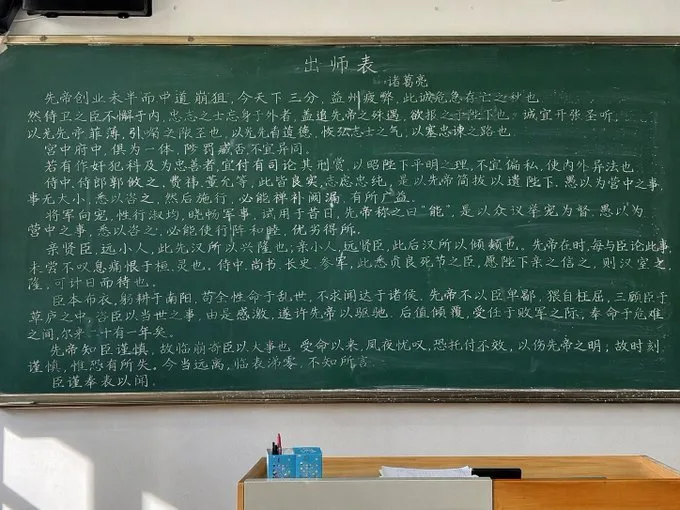 出师表
诸葛亮
先帝创业未半而中道崩殂,今天下三分,益州疲弊,此诚危急存亡之秋也
然侍卫之臣不懈于内,忠志之士忘身于外者,盖追先帝之殊遇,欲报之于陛下也 诚宜开张圣听,
以光先帝 德,恢弘志士之气,以塞忠谏之路也
宫中府中,俱为一体,陟罚臧否,不宜异同.
若有作奸犯科及为忠善者,宜付有司论其刑赏,以昭陛下平明之理,不宜偏私,使内外异法也
侍中,侍郎郭攸之,费祎,董允等,此皆良实,志虑忠纯,是以先帝简拔以遗陛下,愚以为营中之事,
事无大小,悉以咨之,然后施行,必能裨补阙漏,有所广益.
将军向宠,性行淑均,晓畅军事,试用于昔日,先帝称之曰“能”,是以众议举宠为督,愚以为
营中之事,悉以咨之,必能使行阵和睦,优劣得所.
亲贤臣,远小人,此先汉所以兴隆也;亲小人,远贤臣,此后汉所以倾颓也。先帝在时,每与臣论此事,
未尝不叹息痛恨于桓,灵也.侍中,尚书,长史,参军,此悉贞良死节之臣,愿陛下亲之信之,则汉室之
隆,可计日而待也.
臣本布衣,躬耕于南阳,苟全性命于乱世,不求闻达于诸侯,先帝不以臣卑鄙,猥自枉屈,三顾臣于
草庐之中,咨臣以当世之事,由是感激,遂许先帝以驱驰,后值倾覆,受任于败军之际,奉命于危难
之间,尔来二十有一年矣。
先帝知臣谨慎,故临崩寄臣以大事也,受命以来,夙夜忧叹,恐托付不效,以伤先帝之明,故时刻
谨慎,惟恐有所失,今当远离,临表涕零,不知所言
臣谨奉表以闻.